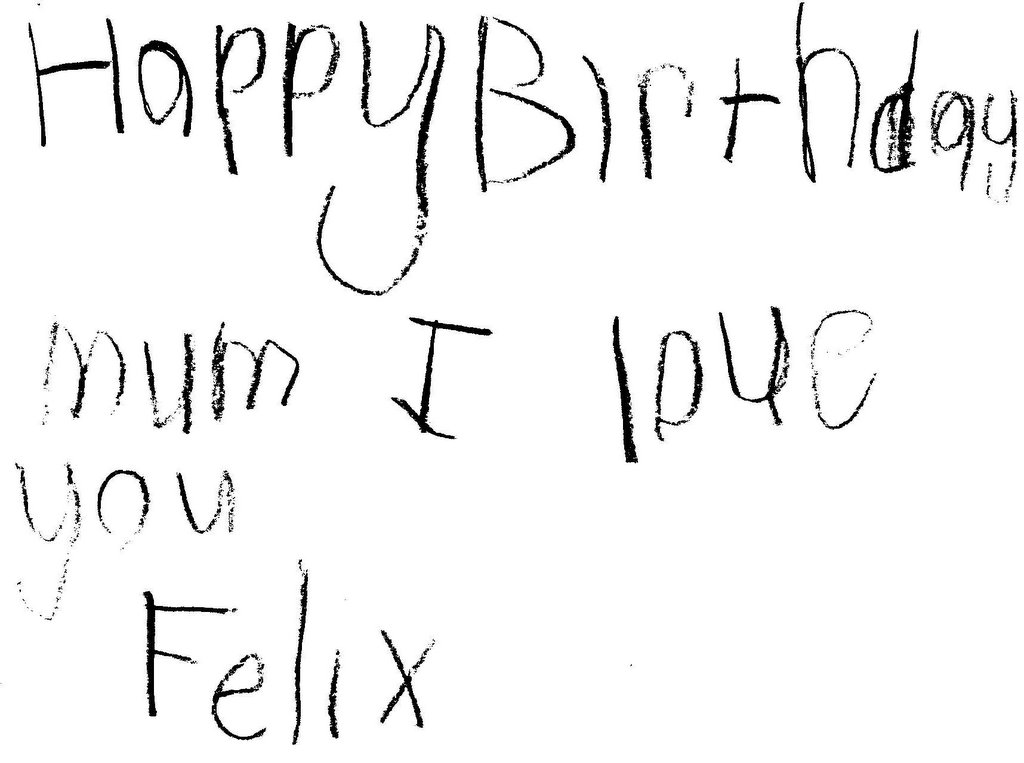 Happy Birthday
mum I love
you
Felix